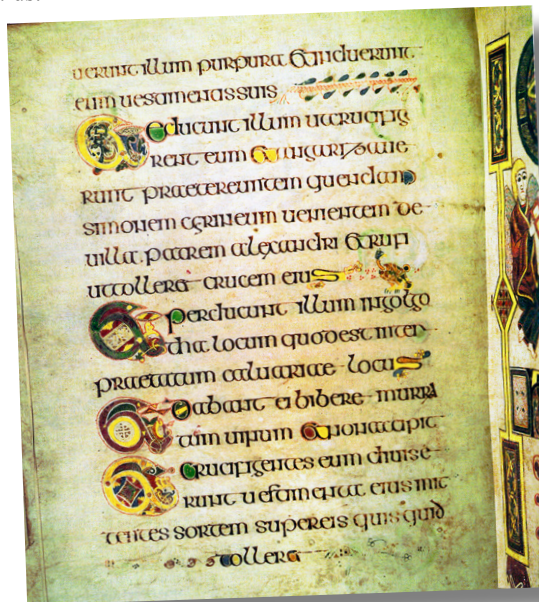 uerunt illum purpura & induerunt
eum uestimentis suis
Et educunt illum ut crucifig
erent eum & angarizaue
runt praetereuntem quendam
simonem cyrineum uenientem de
uilla patrem alexandri & rufi
ut tolleret crucem eius
Et perducunt illum in golgo
tha locum quod est inter
praetatum caluariae locus
Et dabant ei bibere murra
tum uinum & non accipit
Et crucifigentes eum diuise
runt uestimenta eius mit
tentes sortem super eis quis quid
tolleret